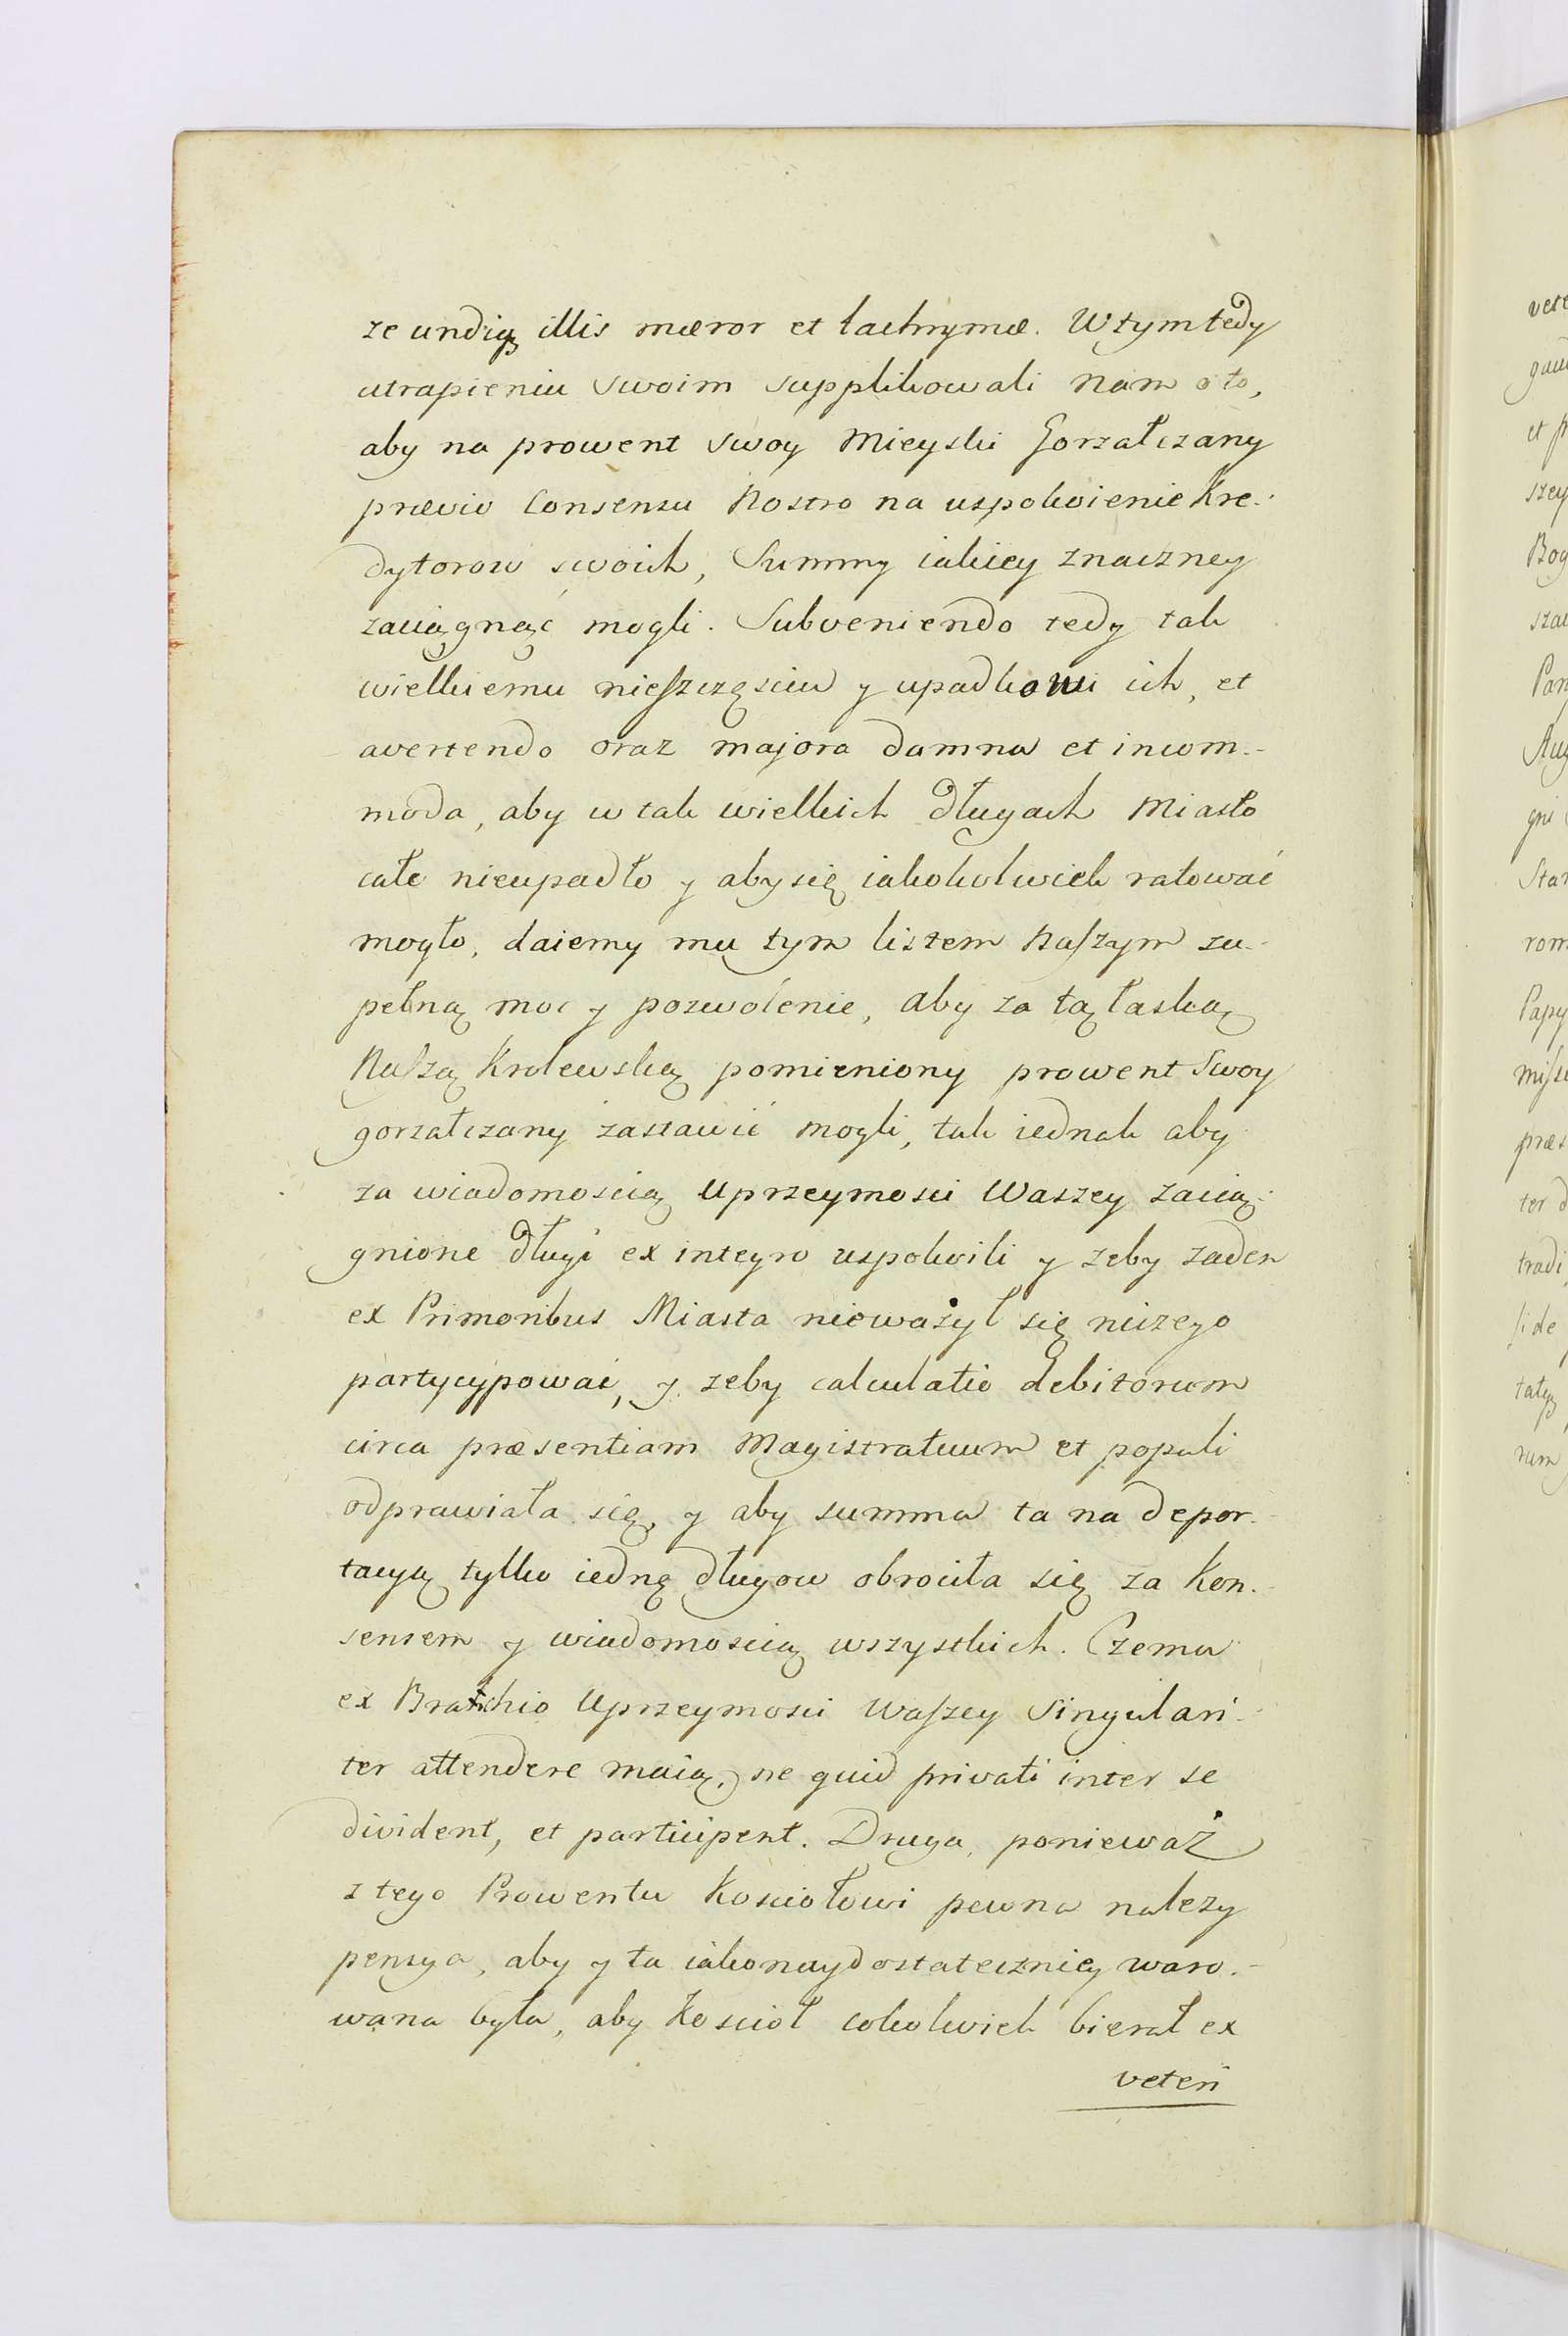 ze undiq illis mæror et lachrymæ. W tym tedy
utrapieniu swoim supplikowali nam o to,
aby na prowent swoy Mieyski Gorzałczany
prævio Consensu Nostro na uspokoienie Kre-
dytorow swoich, Summy iakiey znaczney
zaciągnąć mogli. Subveniendo tedy tak
wielkiemu nieszczęsciu y upadkowi ich, et
avertendo oraz majora damna et incom-
moda, aby w tak wielkich długach Miasto
całe nieupadło y aby się iakokolwiek ratować
mogło, daiemy mu tym listem Naszym zu-
pełną moc y pozwolenie, aby za tą łaską
Naszą Krolewską pomieniony prowent swoy
gorzałczany zastawić mogli, tak iednak aby
za wiadomoscią Uprzeymosci Waszey zacią-
gnione długi ex integro uspokoili y zeby zaden
ex Primoribus Miasta nieważył się niczego
partycypować, y zeby calculatio debitorum
circa præsentiam Magistratuum et populi
odprawiała się, y aby summa ta na depor-
tacyą tylko iedną długow obrociła się za Kon-
sensem y wiadomoscią wszystkich. Czemu
ex Brachio Uprzeymosci Waszey singulari-
ter attendere maią, ne quid privati inter se
divident, et participent. Druga, ponieważ
z tego Prowentu Kosciołowi pewna nalezy
pensya, aby y ta iako naydostateczniey waro-
wana była, aby Koscioł cokolwiek bierał ex
veteri
vete
et p
szey
Bog
Pan
Aug
rom
Papy
præs
tradi
rum